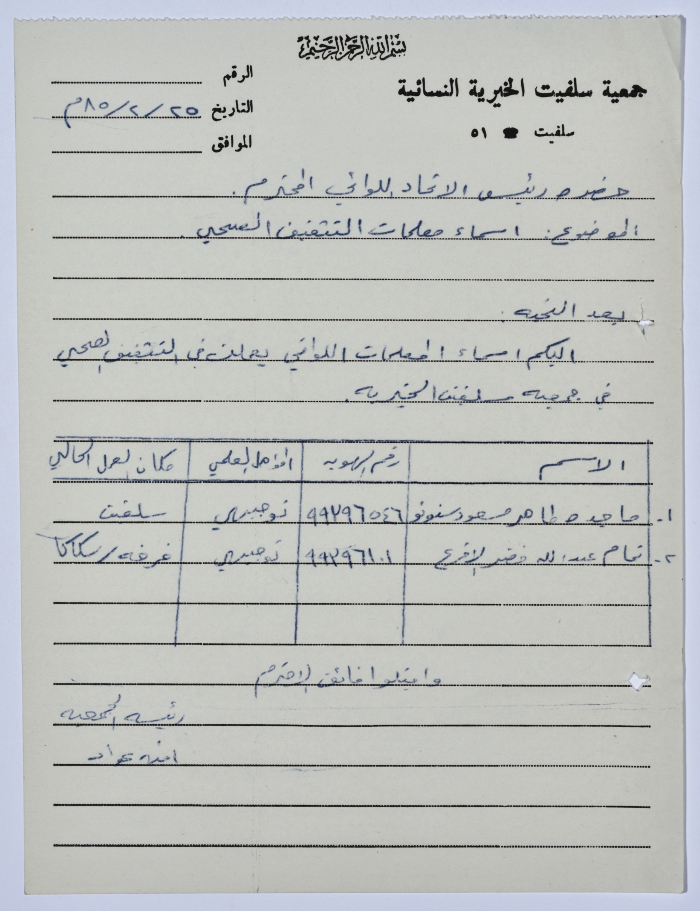 بسم الله الرحمن الرحيم
جمعية سلفيت الخيرية النسائية
سلفيت ☎ ٥١
الرقم
التاريخ ٢٥/٢/٨٥م
الموافق
حضرة رئيس الاتحاد اللوائي المحترم.
الموضوع: اسماء معلمات التثقيف الصحي.
بعد التحية:
اليكم اسماء المعلمات اللواتي يعملن في التثقيف الصحي
في جمعية سلفيت الخيرية.
الاسم رقم الهوية المؤهل العلمي مكان العمل الحالي
١- ماجدة طاهر مسعود ٩٩٢٩٦٥٤٦ توجيهي سلفيت
٢- تمام عبد الله خضر الاقرع ٩٩٢٩٦١٠١ توجيهي سكاكا
واقبلوا فائق الاحترام
رئيسة الجمعية
امنه عواد